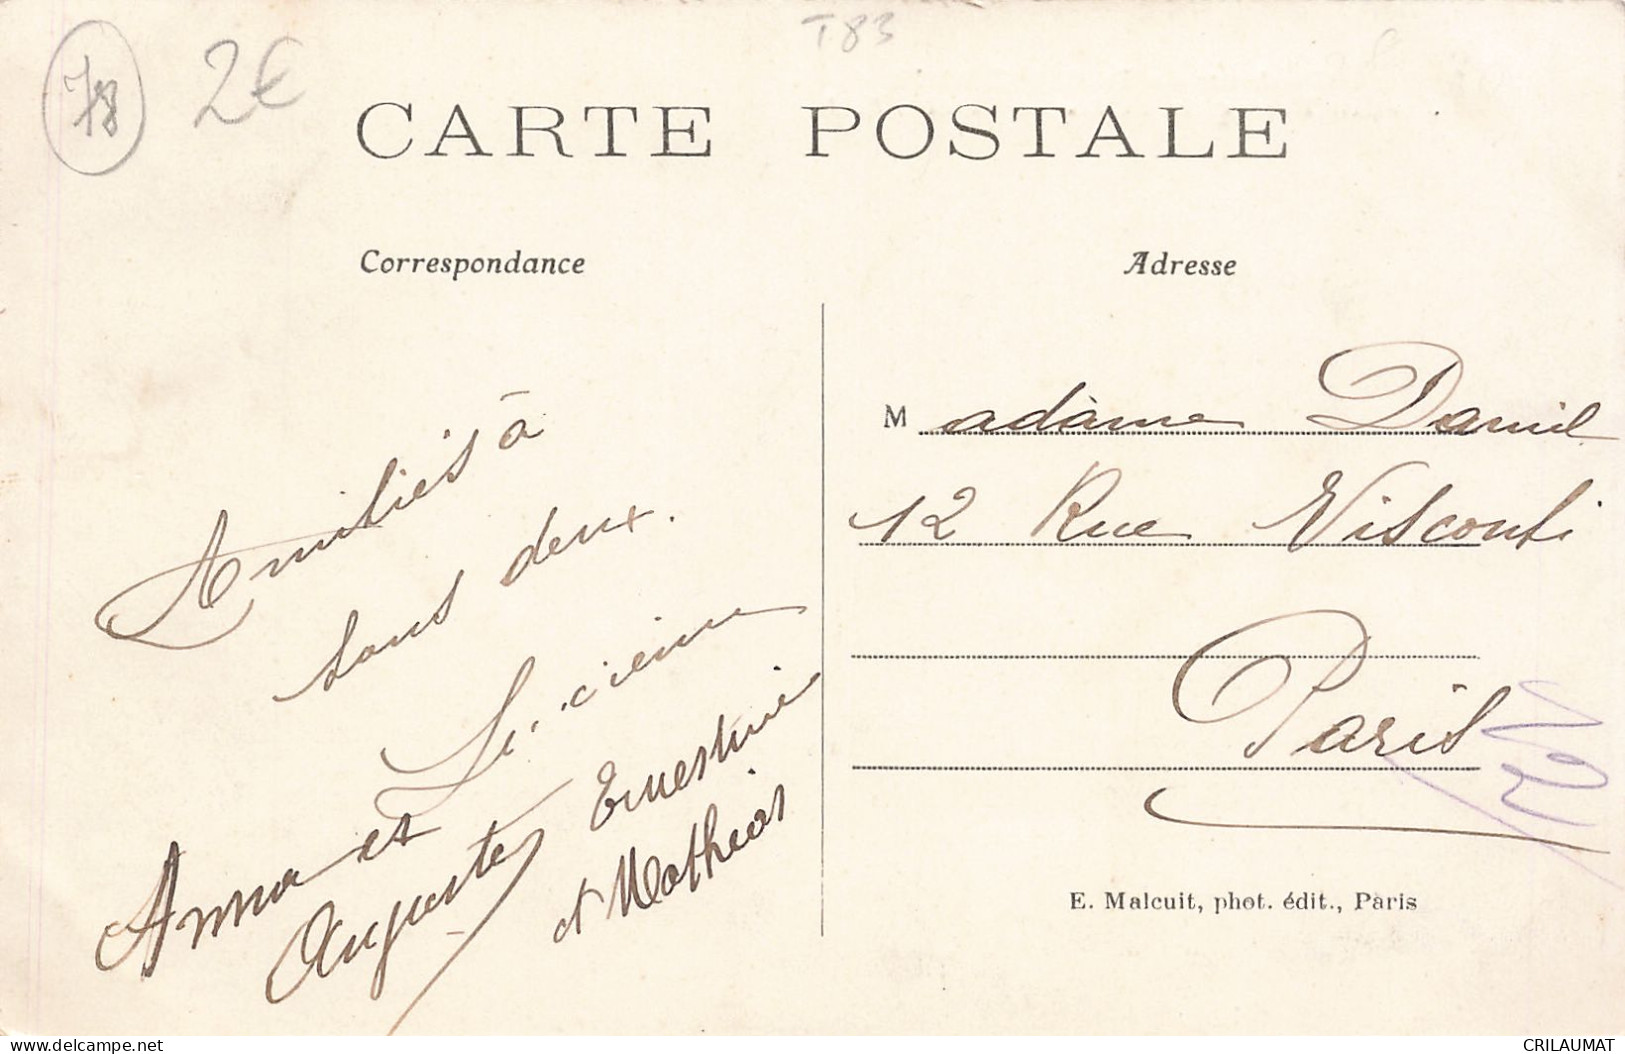 78
2€
T83
CARTE POSTALE
Correspondance
Adresse
Amitiés à
tous deux.
Anna et
Auguste
Ernestine
et Mathias
Madame Daniel
12 Rue Visconti
Paris
E. Malcuit, phot. édit., Paris
delcampe.net
CRILAUMAT